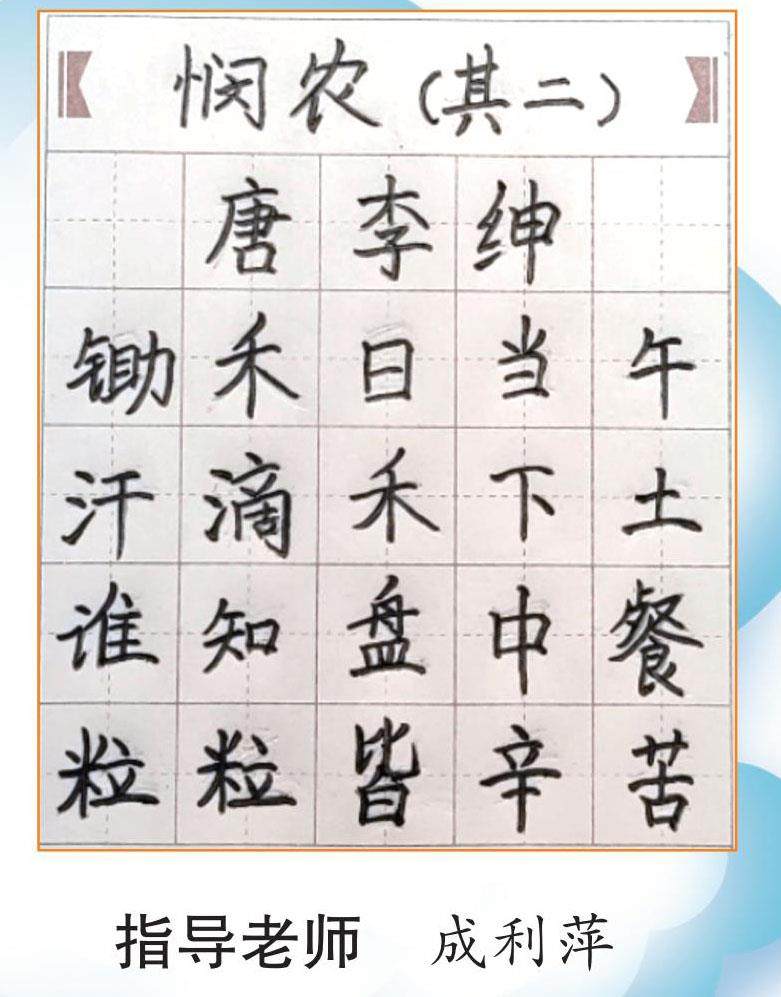 悯农（其二）
唐李绅
锄禾日当午
汗滴禾下土
谁知盘中餐
粒粒皆辛苦
指导老师 成利萍